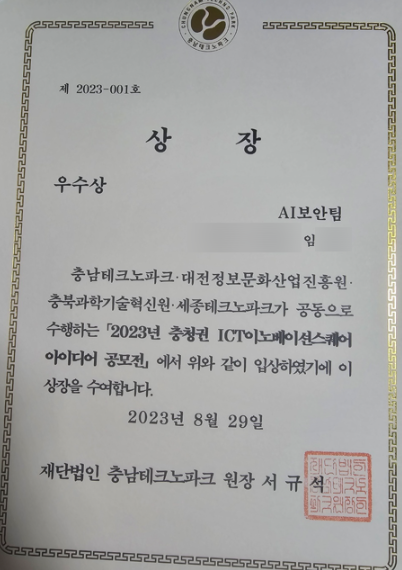 제 2023-001호
상 장
우수상
AI보안팀
임
충남테크노파크·대전정보문화산업진흥원·
충북과학기술혁신원·세종테크노파크가 공동으로
수행하는 「2023년 충청권 ICT이노베이션스퀘어
아이디어 공모전」에서 위와 같이 입상하였기에 이
상장을 수여합니다.
2023년 8월 29일
재단법인 충남테크노파크 원장 서 규 석